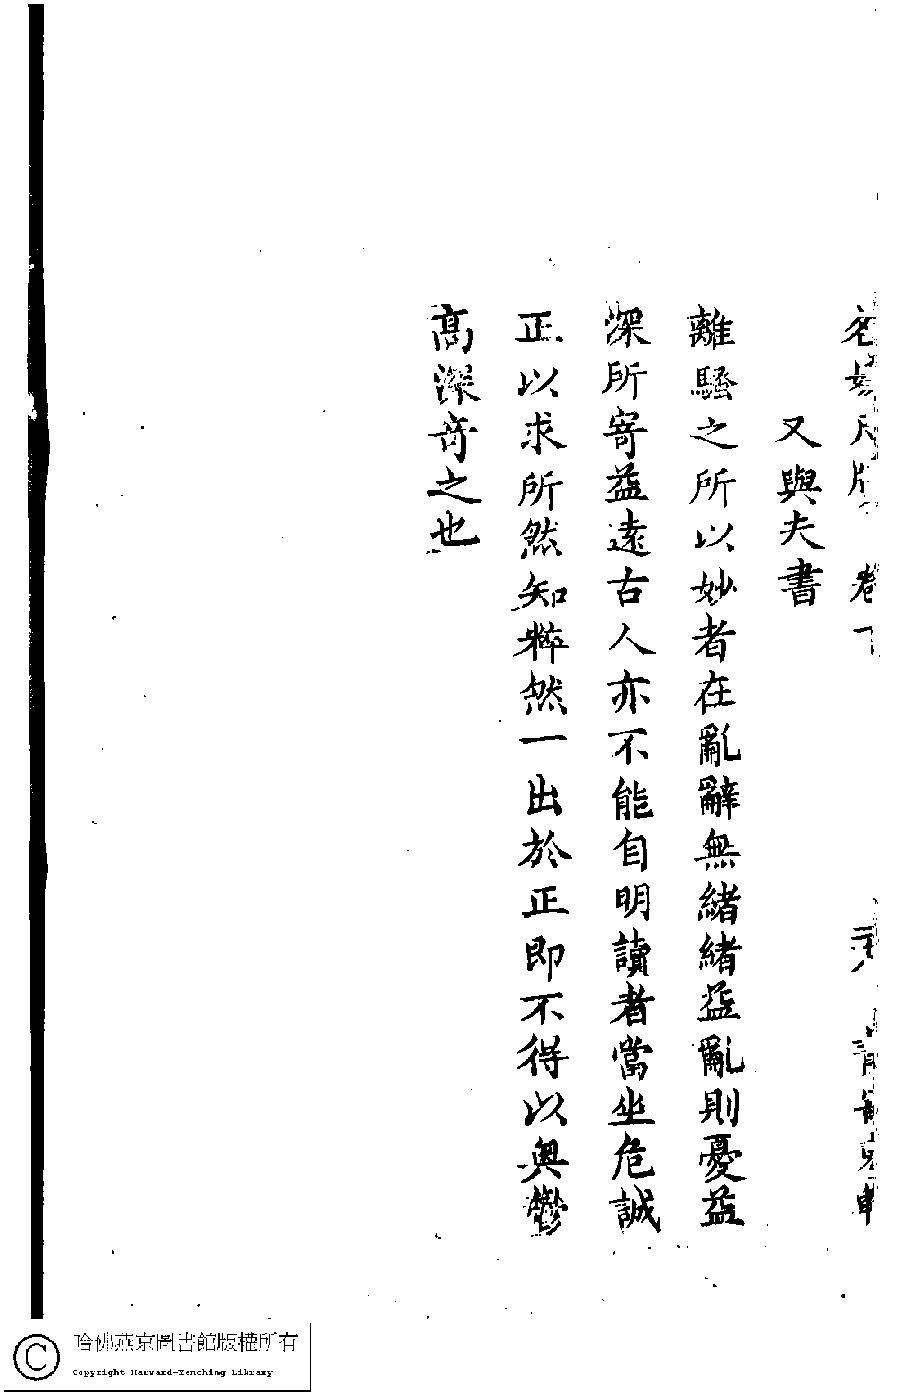 卷下
又與夫書
離騷之所以妙者在亂辭無緒緒益亂則憂益
深所寄益遠古人亦不能自明讀者當坐危誠
正以求所然知粹然一出於正即不得以奧鬱
高深奇之也
哈佛燕京圖書館版權所有
Copyright Harvard-Yenching Library